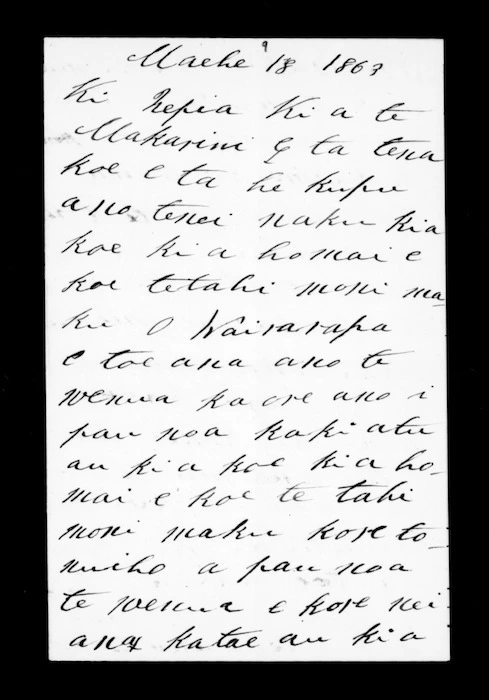 Maehe 18 1863
Ki Nepia Ki a te
Makarini E ta tena
koe E ta he kupu
ano tenei naku kia
koe ki a homai e
koe tetahi moni ma-
ku O Wairarapa
e toe ana ano te
wenua ka ore ano i
pau noa kaki atu
au ki a koe kia ho-
mai e koe te tahi
moni maku kore to-
nuiho a pau noa
te wenua e kore nei
ana katae au ki a